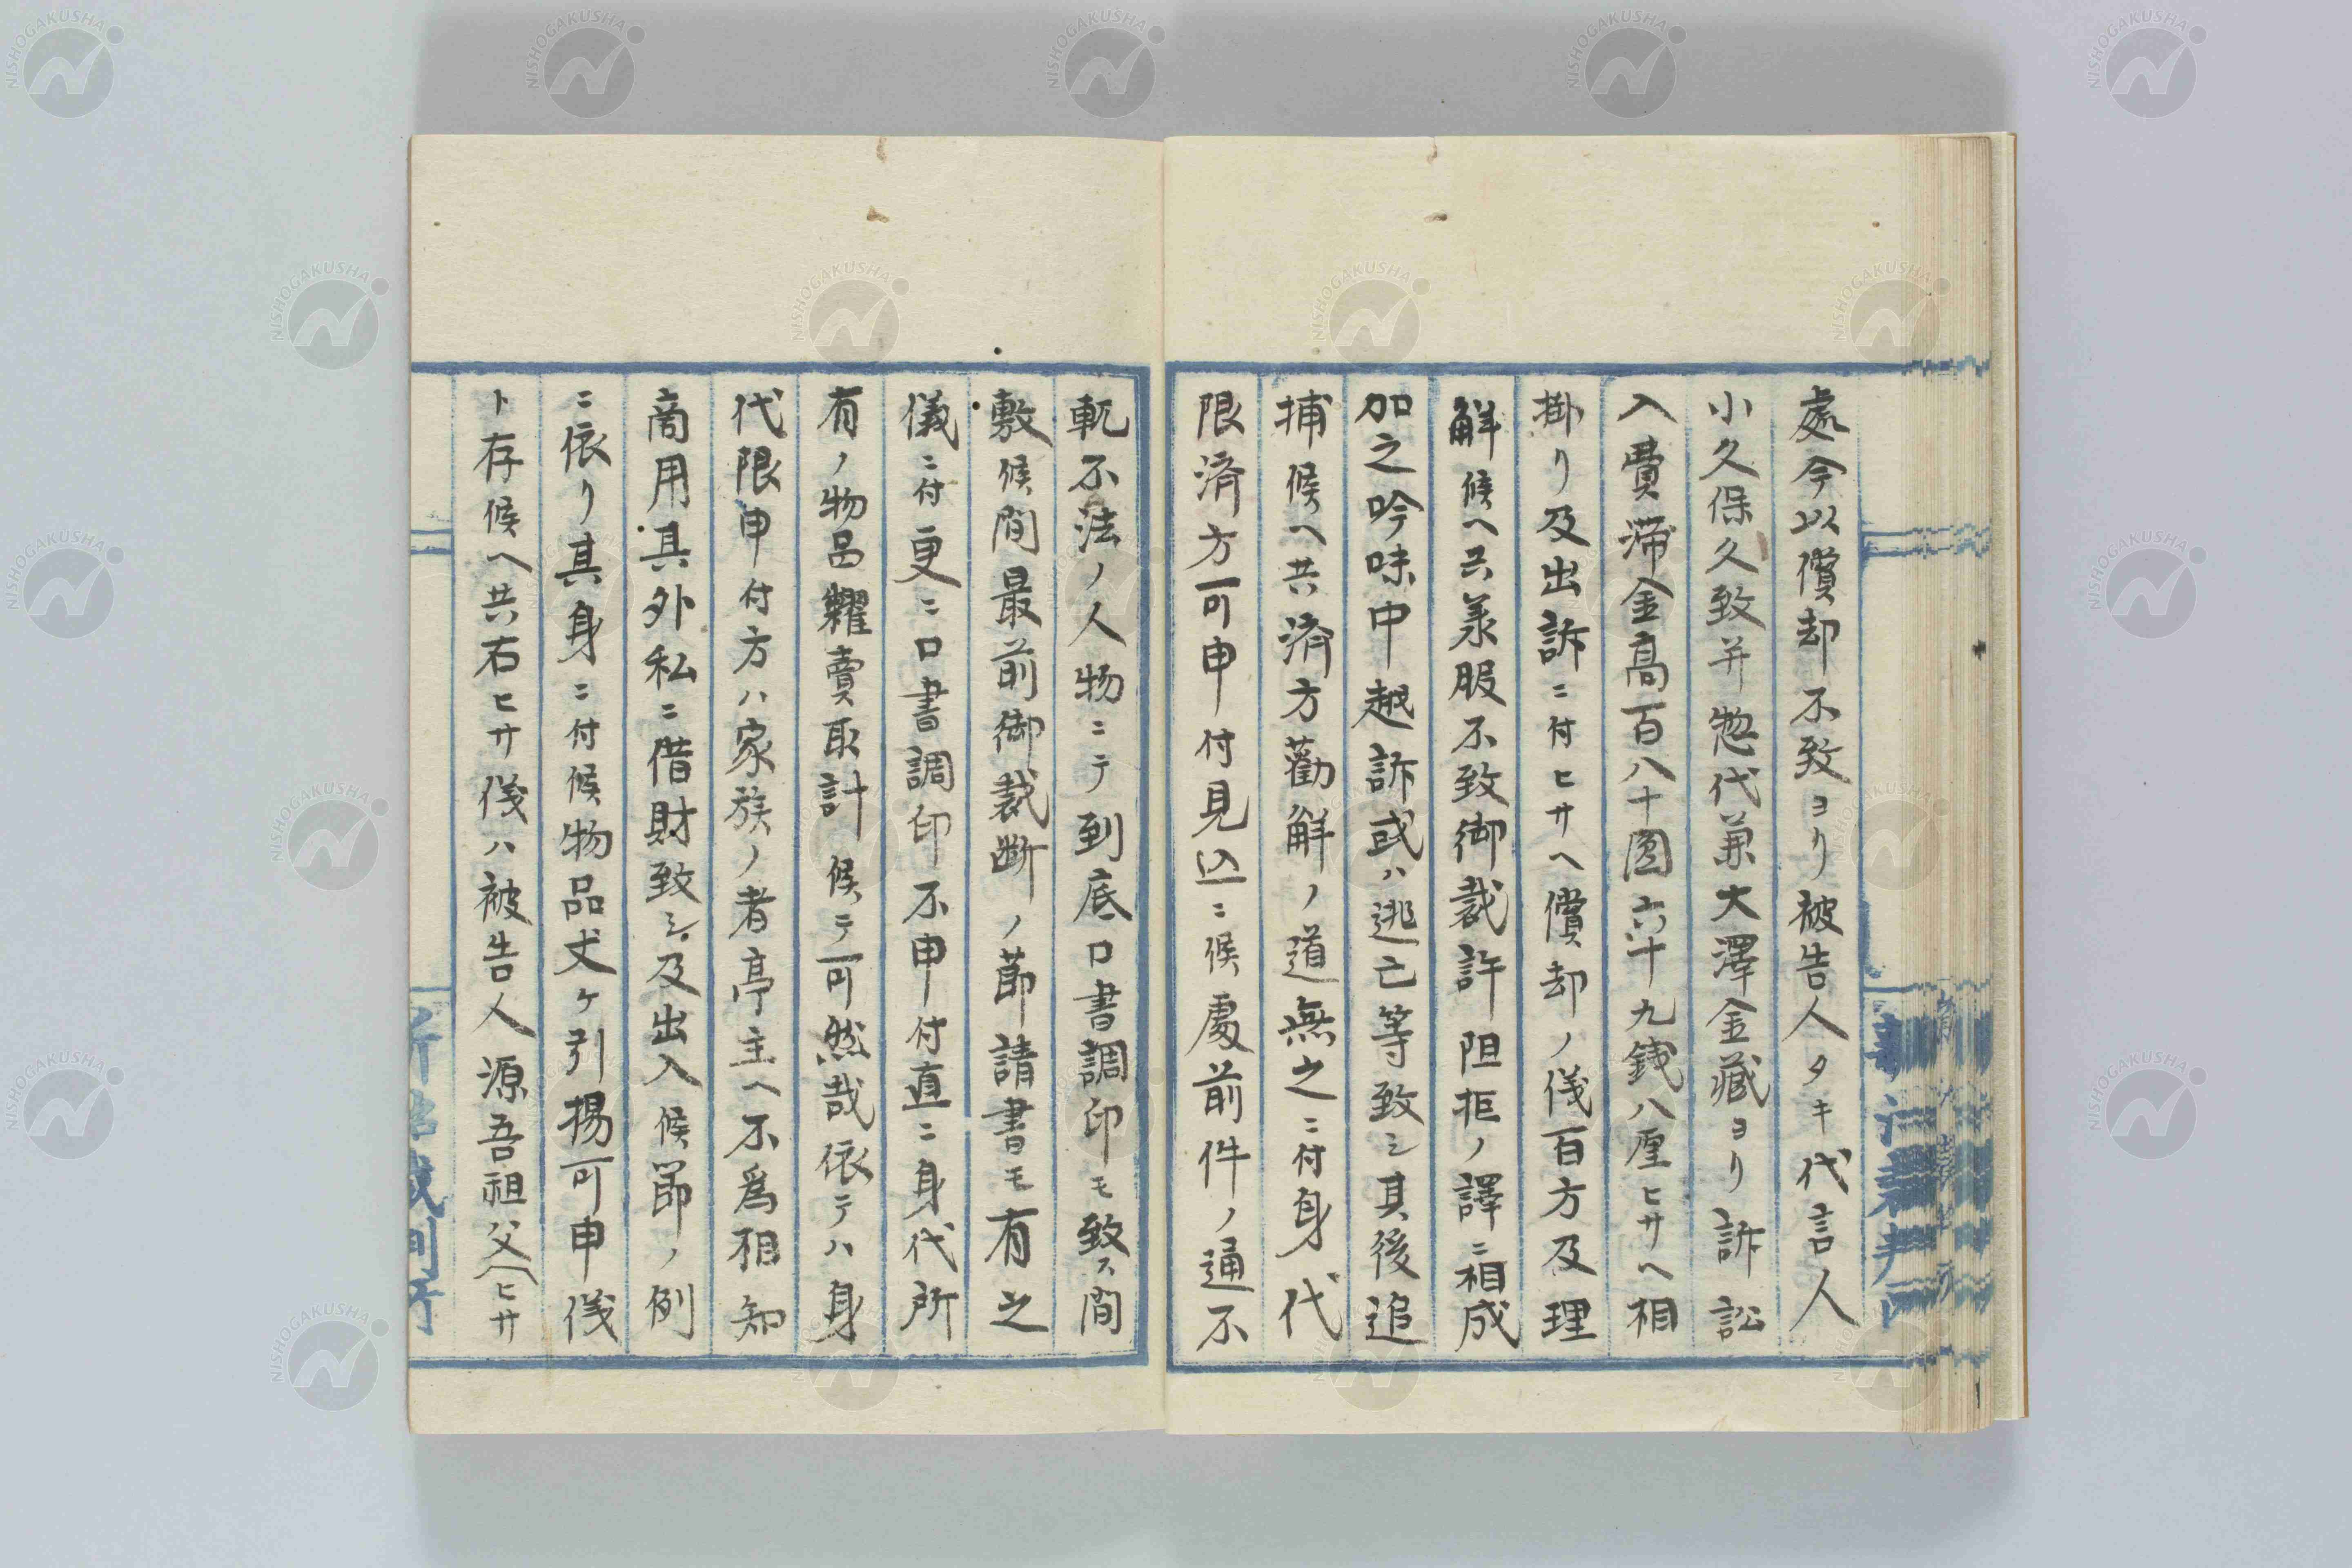 處今以償却不致ヨリ被告人タキ代言人
小久保久致并惣代兼大澤金藏ヨリ訴訟
入費滞金高百八十圓六十九銭八厘ヒサヘ相
掛リ及出訴ニ付ヒサヘ償却ノ儀百方及理
解候ヘ共羕服不致御裁許阻拒ノ譯ニ相成
加之吟味中越訴或ハ逃亡等致シ其後追
捕候ヘ共済方勸解ノ道無之ニ付身代
限済方可申付見込ニ候處前件ノ通不
軌不法ノ人物ニテ到底口書調印モ致ス間
敷候間最前御裁断ノ節請書モ有之
儀ニ付更ニ口書調印不申付直ニ身代所
有ノ物品糶賣取計候テ可然哉依テハ身
代限申付方ハ家族ノ者亭主ヘ不爲相知
商用具外私ニ借財致シ及出入候節ノ例
ニ依リ其身ニ付候物品丈ケ引揚可申儀
ト存候ヘ共右ヒサ儀ハ被告人源吾祖父(ヒサ
NISHOGAKUSHA